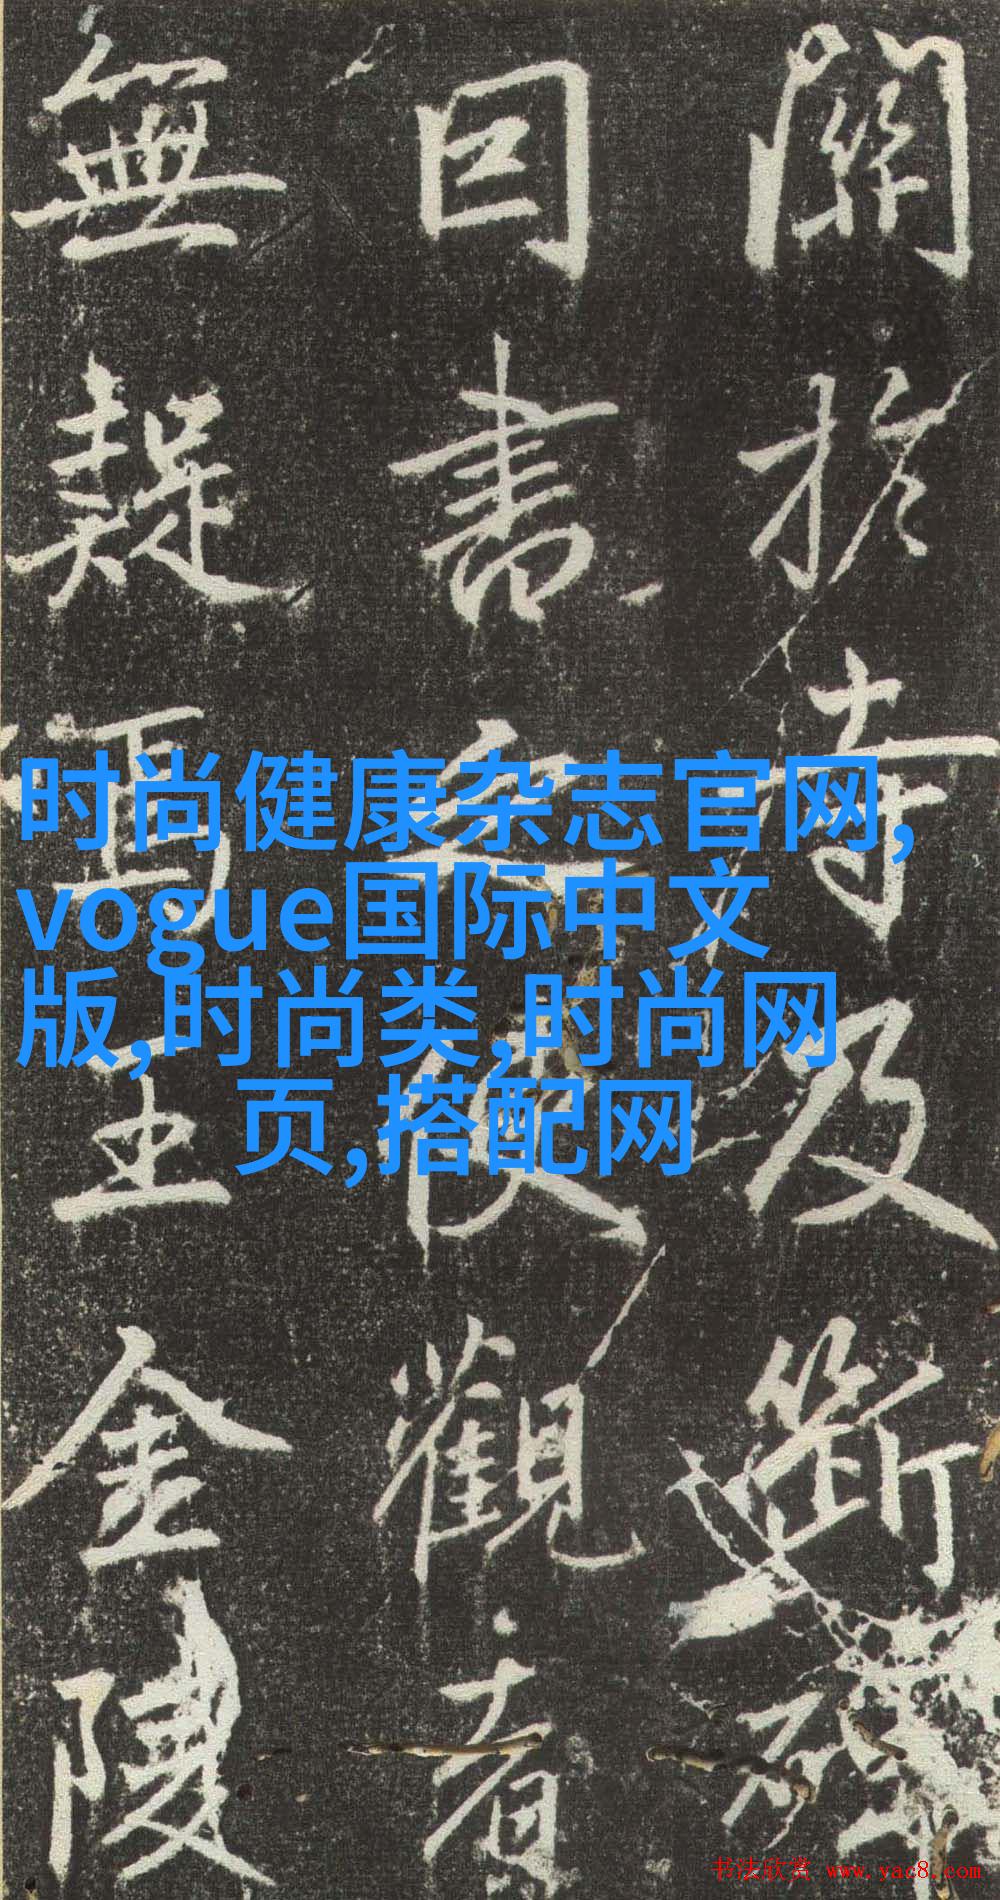 關扵寺及斷
日書觀者
無疑焉王金陵
时尚健康杂志官网,
vogue国际中文
版,时尚类,时尚网
页,搭配网
书法欣赏 www.yac8.com